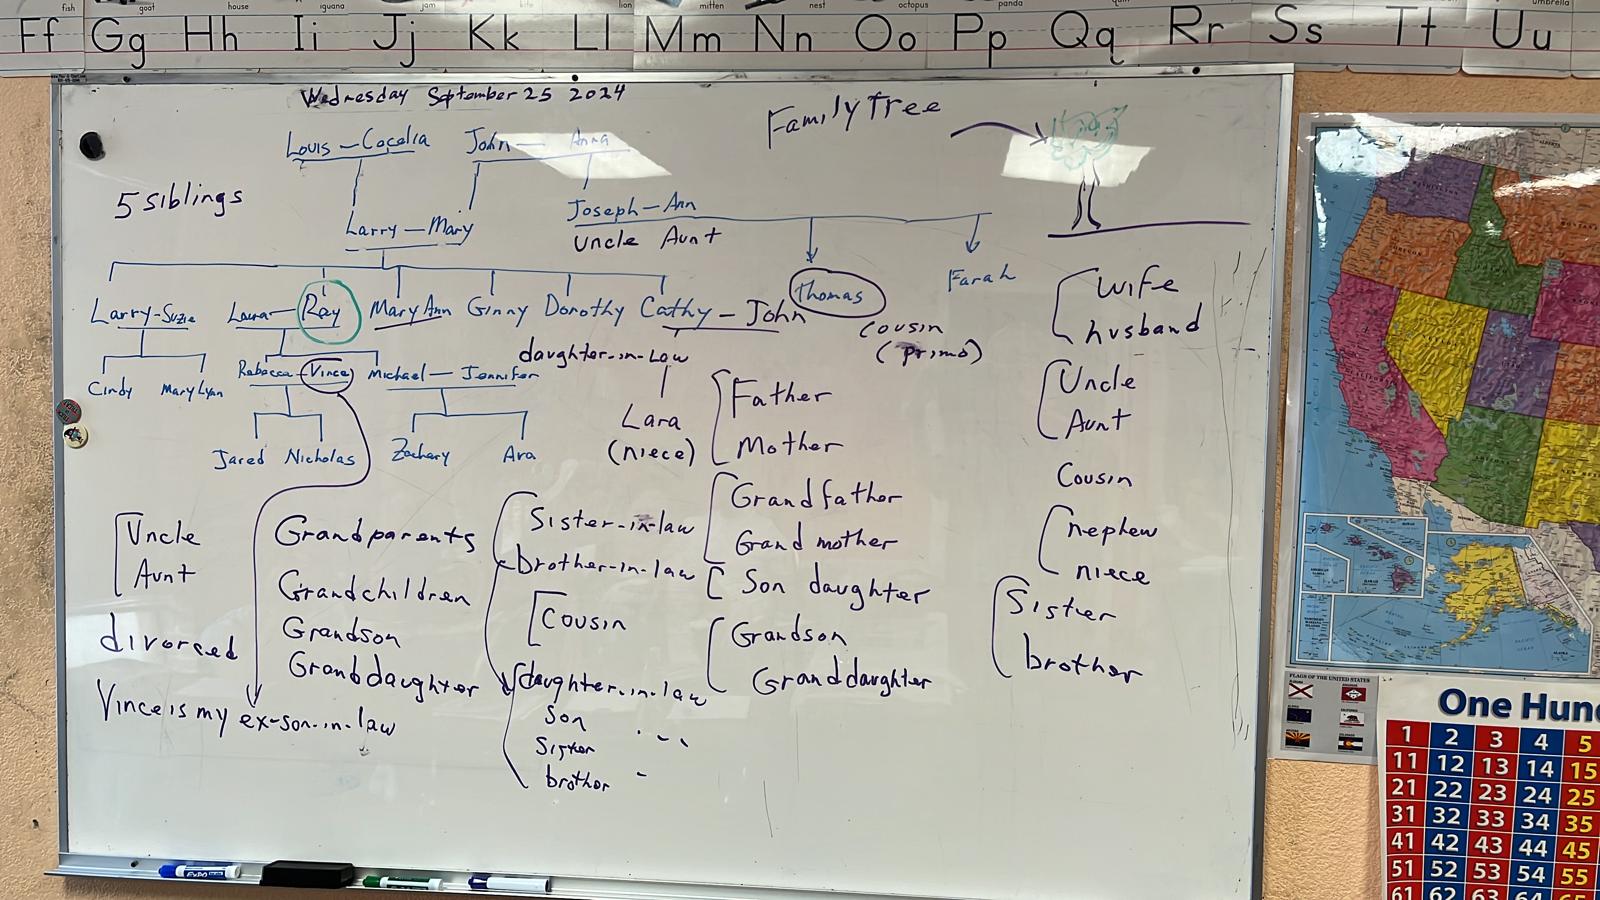 fish goat house iguana jam kite lion mitten nest octopus panda umbrella
Ff Gg Hh Ii Jj Kk Ll Mm Nn Oo Pp Qq Rr Ss Tt Uu
Wednesday September 25 2024
Family Tree
Louis — Cecelia John — Anna
5 siblings
Joseph — Ann
Larry — Mary
Uncle Aunt
Larry - Suzie Laura — Ray Mary Ann Ginny Dorothy Cathy — John
Thomas
Farah
cousin
(primo)
daughter-in-Law
Cindy Mary Lynn Rebecca — Vince Michael — Jennifer
Lara
(niece)
Jared Nicholas Zachary Ava
Wife
husband
Uncle
Aunt
Cousin
nephew
niece
Sister
brother
Father
Mother
Grandfather
Grand mother
Son daughter
Grandson
Granddaughter
Sister-in-law
brother-in-law
Cousin
daughter-in-law
Son " "
Sister
brother "
Grandparents
Grandchildren
Grandson
Granddaughter
Uncle
Aunt
divorced
Vince is my ex-son-in-law
FLAGS OF THE UNITED STATES
One Hun
1 2 3 4 5
11 12 13 14 15
21 22 23 24 25
31 32 33 34 35
41 42 43 44 45
51 52 53 54 55
61 62 63 64 65
EXPO